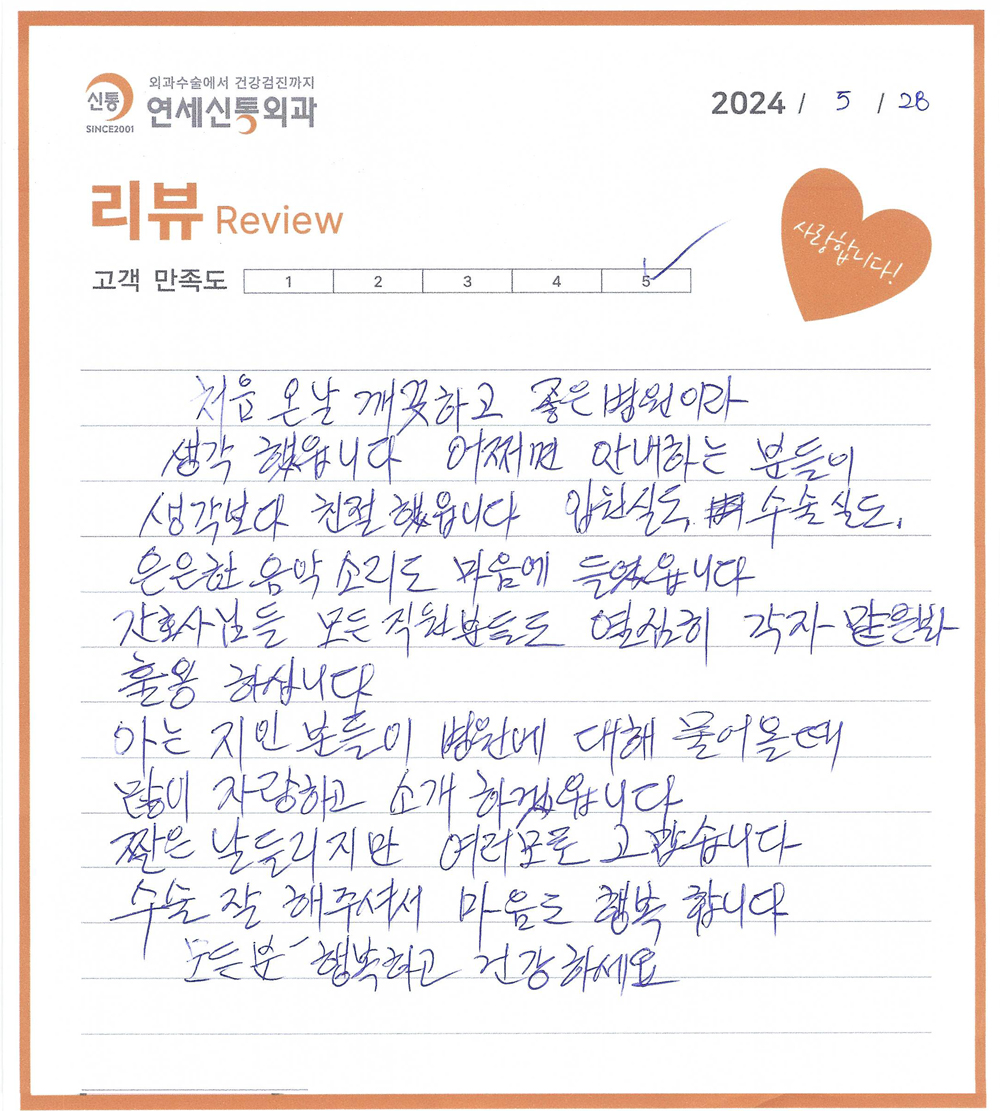 외과수술에서 건강검진까지
신통 연세신통외과
SINCE2001
2024 / 5 / 28
리뷰 Review
사랑합니다!
고객 만족도 1 2 3 4 5
처음 온날 깨끗하고 좋은 병원이라
생각 했읍니다 어쩌면 안내하는 분들이
생각보다 친절했읍니다 입원실도, 수술실도,
은은한 음악 소리도 마음에 들었읍니다
간호사님들 모든 직원분들도 열심히 각자 맡은바
하십니다
아는 지인 분들이 병원에 대해 물어올때
많이 자랑하고 소개 하겠읍니다
짧은 날들리지만 여러모로 고맙습니다
수술 잘 해주셔서 마음도 행복 합니다
모든분 행복하고 건강하세요